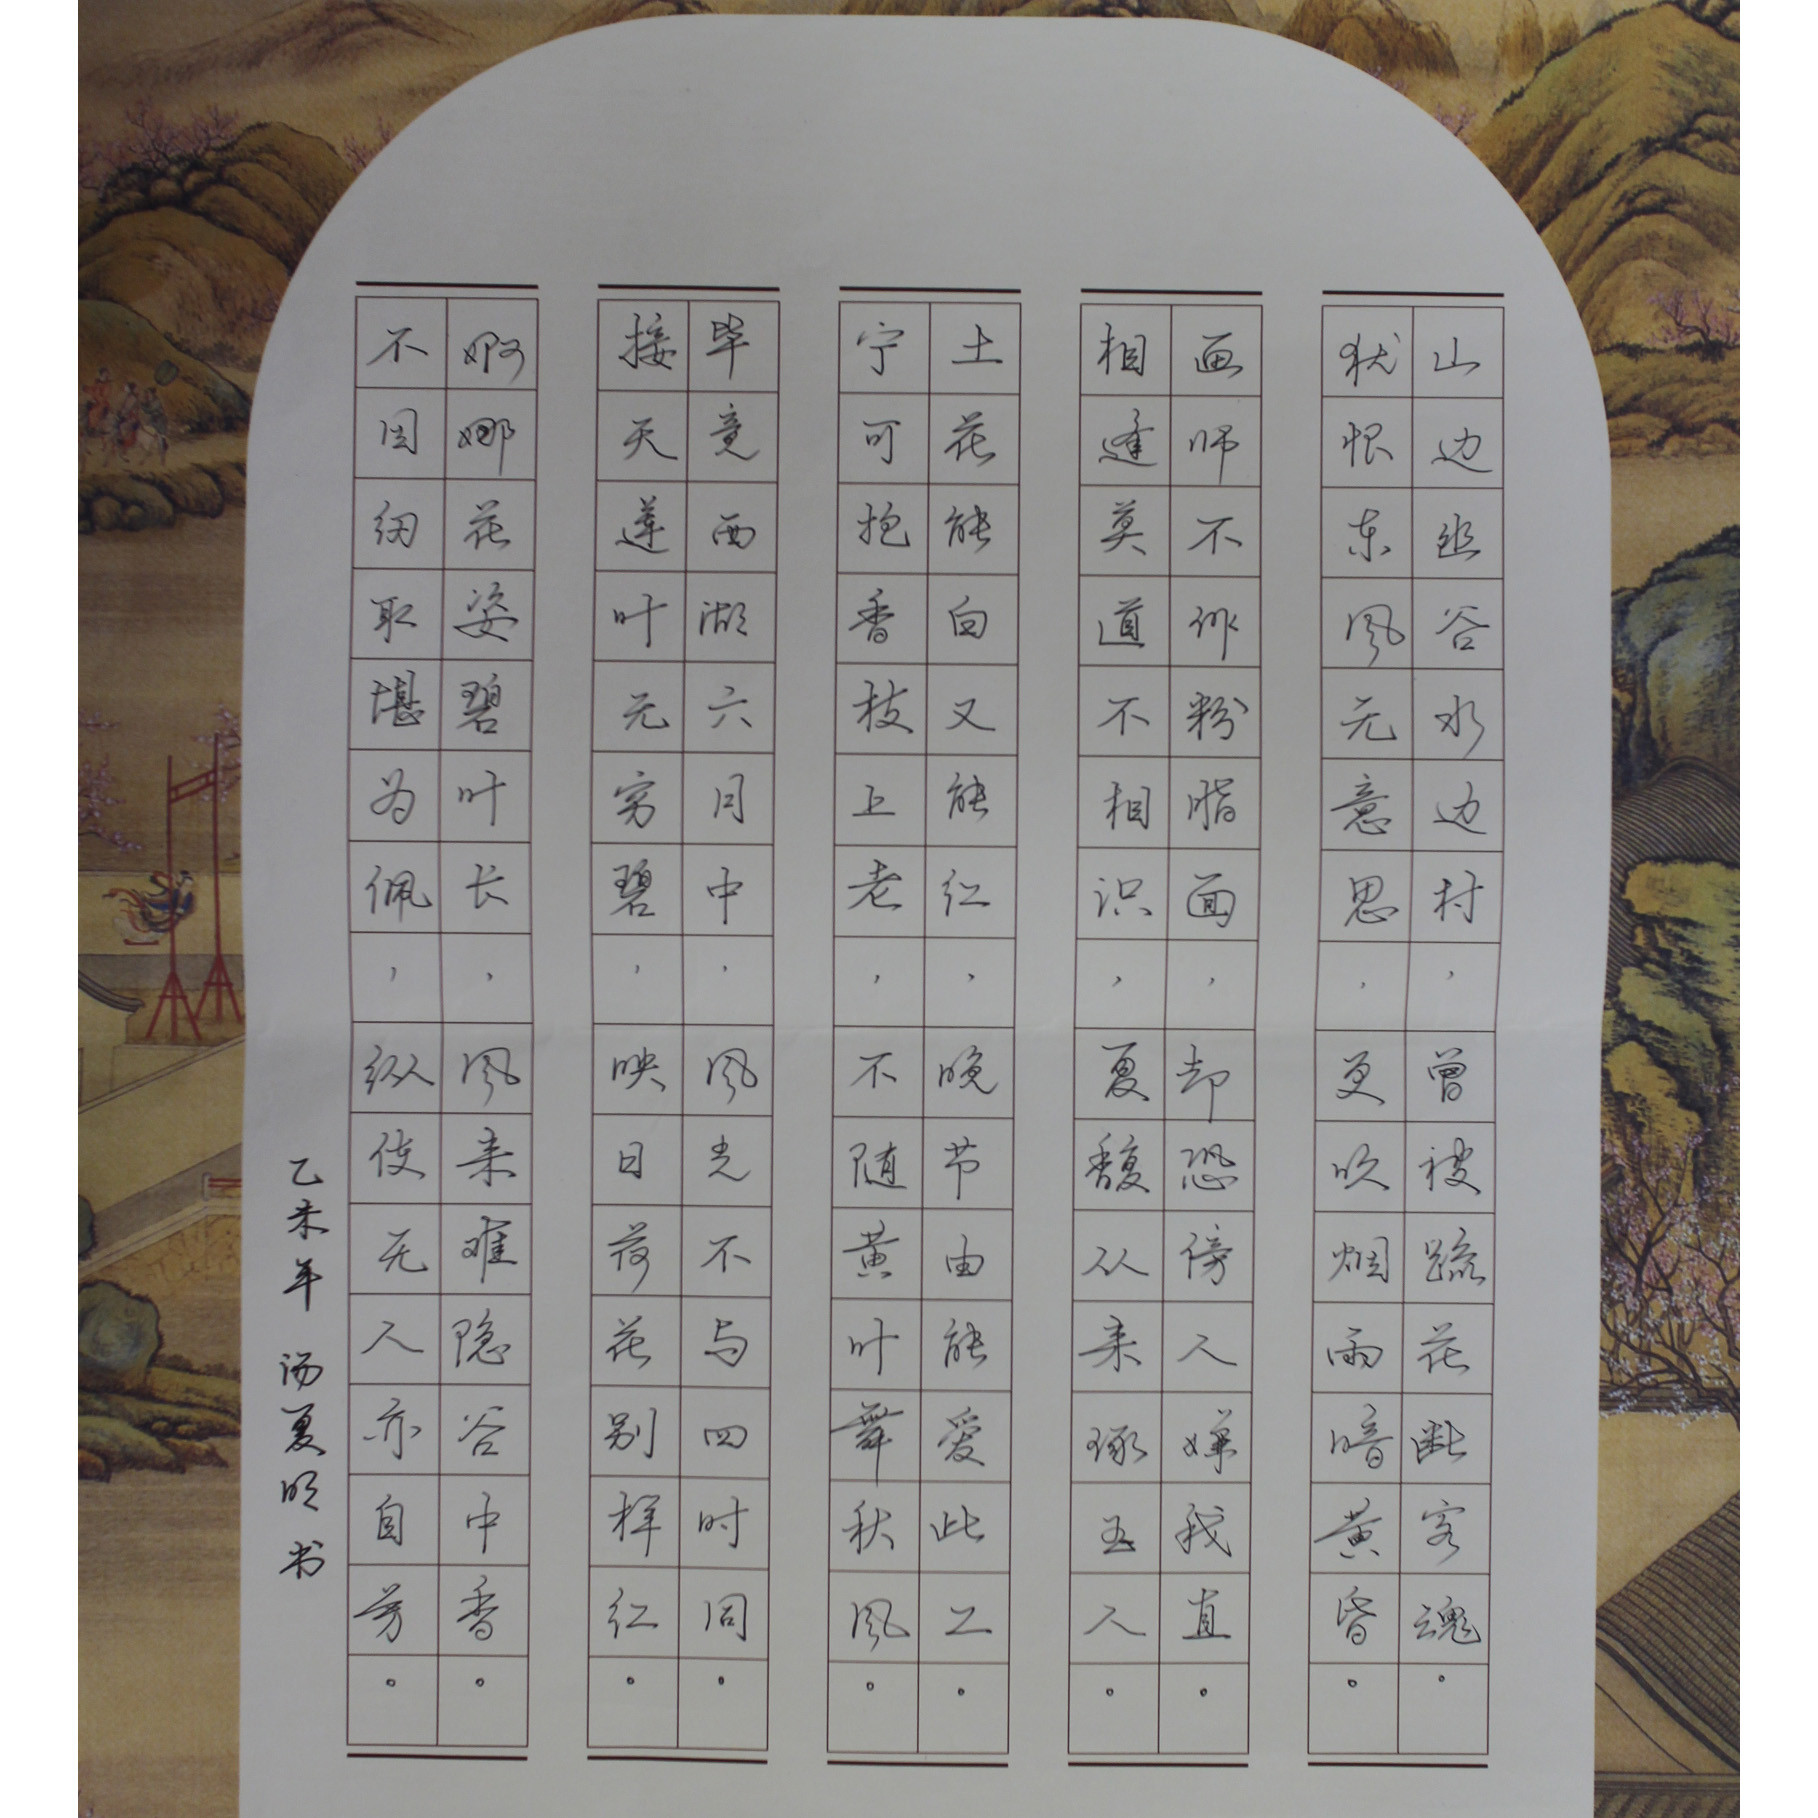 山边幽谷水边村，曾被疏花断客魂。
犹恨东风无意思，更吹烟雨暗黄昏。
画师不作粉脂面，却恐傍人嫌我直。
相逢莫道不相识，夏馥从来琢玉人。
土花能白又能红，晚节由能爱此工。
宁可抱香枝上老，不随黄叶舞秋风。
毕竟西湖六月中，风光不与四时同。
接天莲叶无穷碧，映日荷花别样红。
婀娜花姿碧叶长，风来难隐谷中香。
不因纫取堪为佩，纵使无人亦自芳。
乙未年 汤夏明书